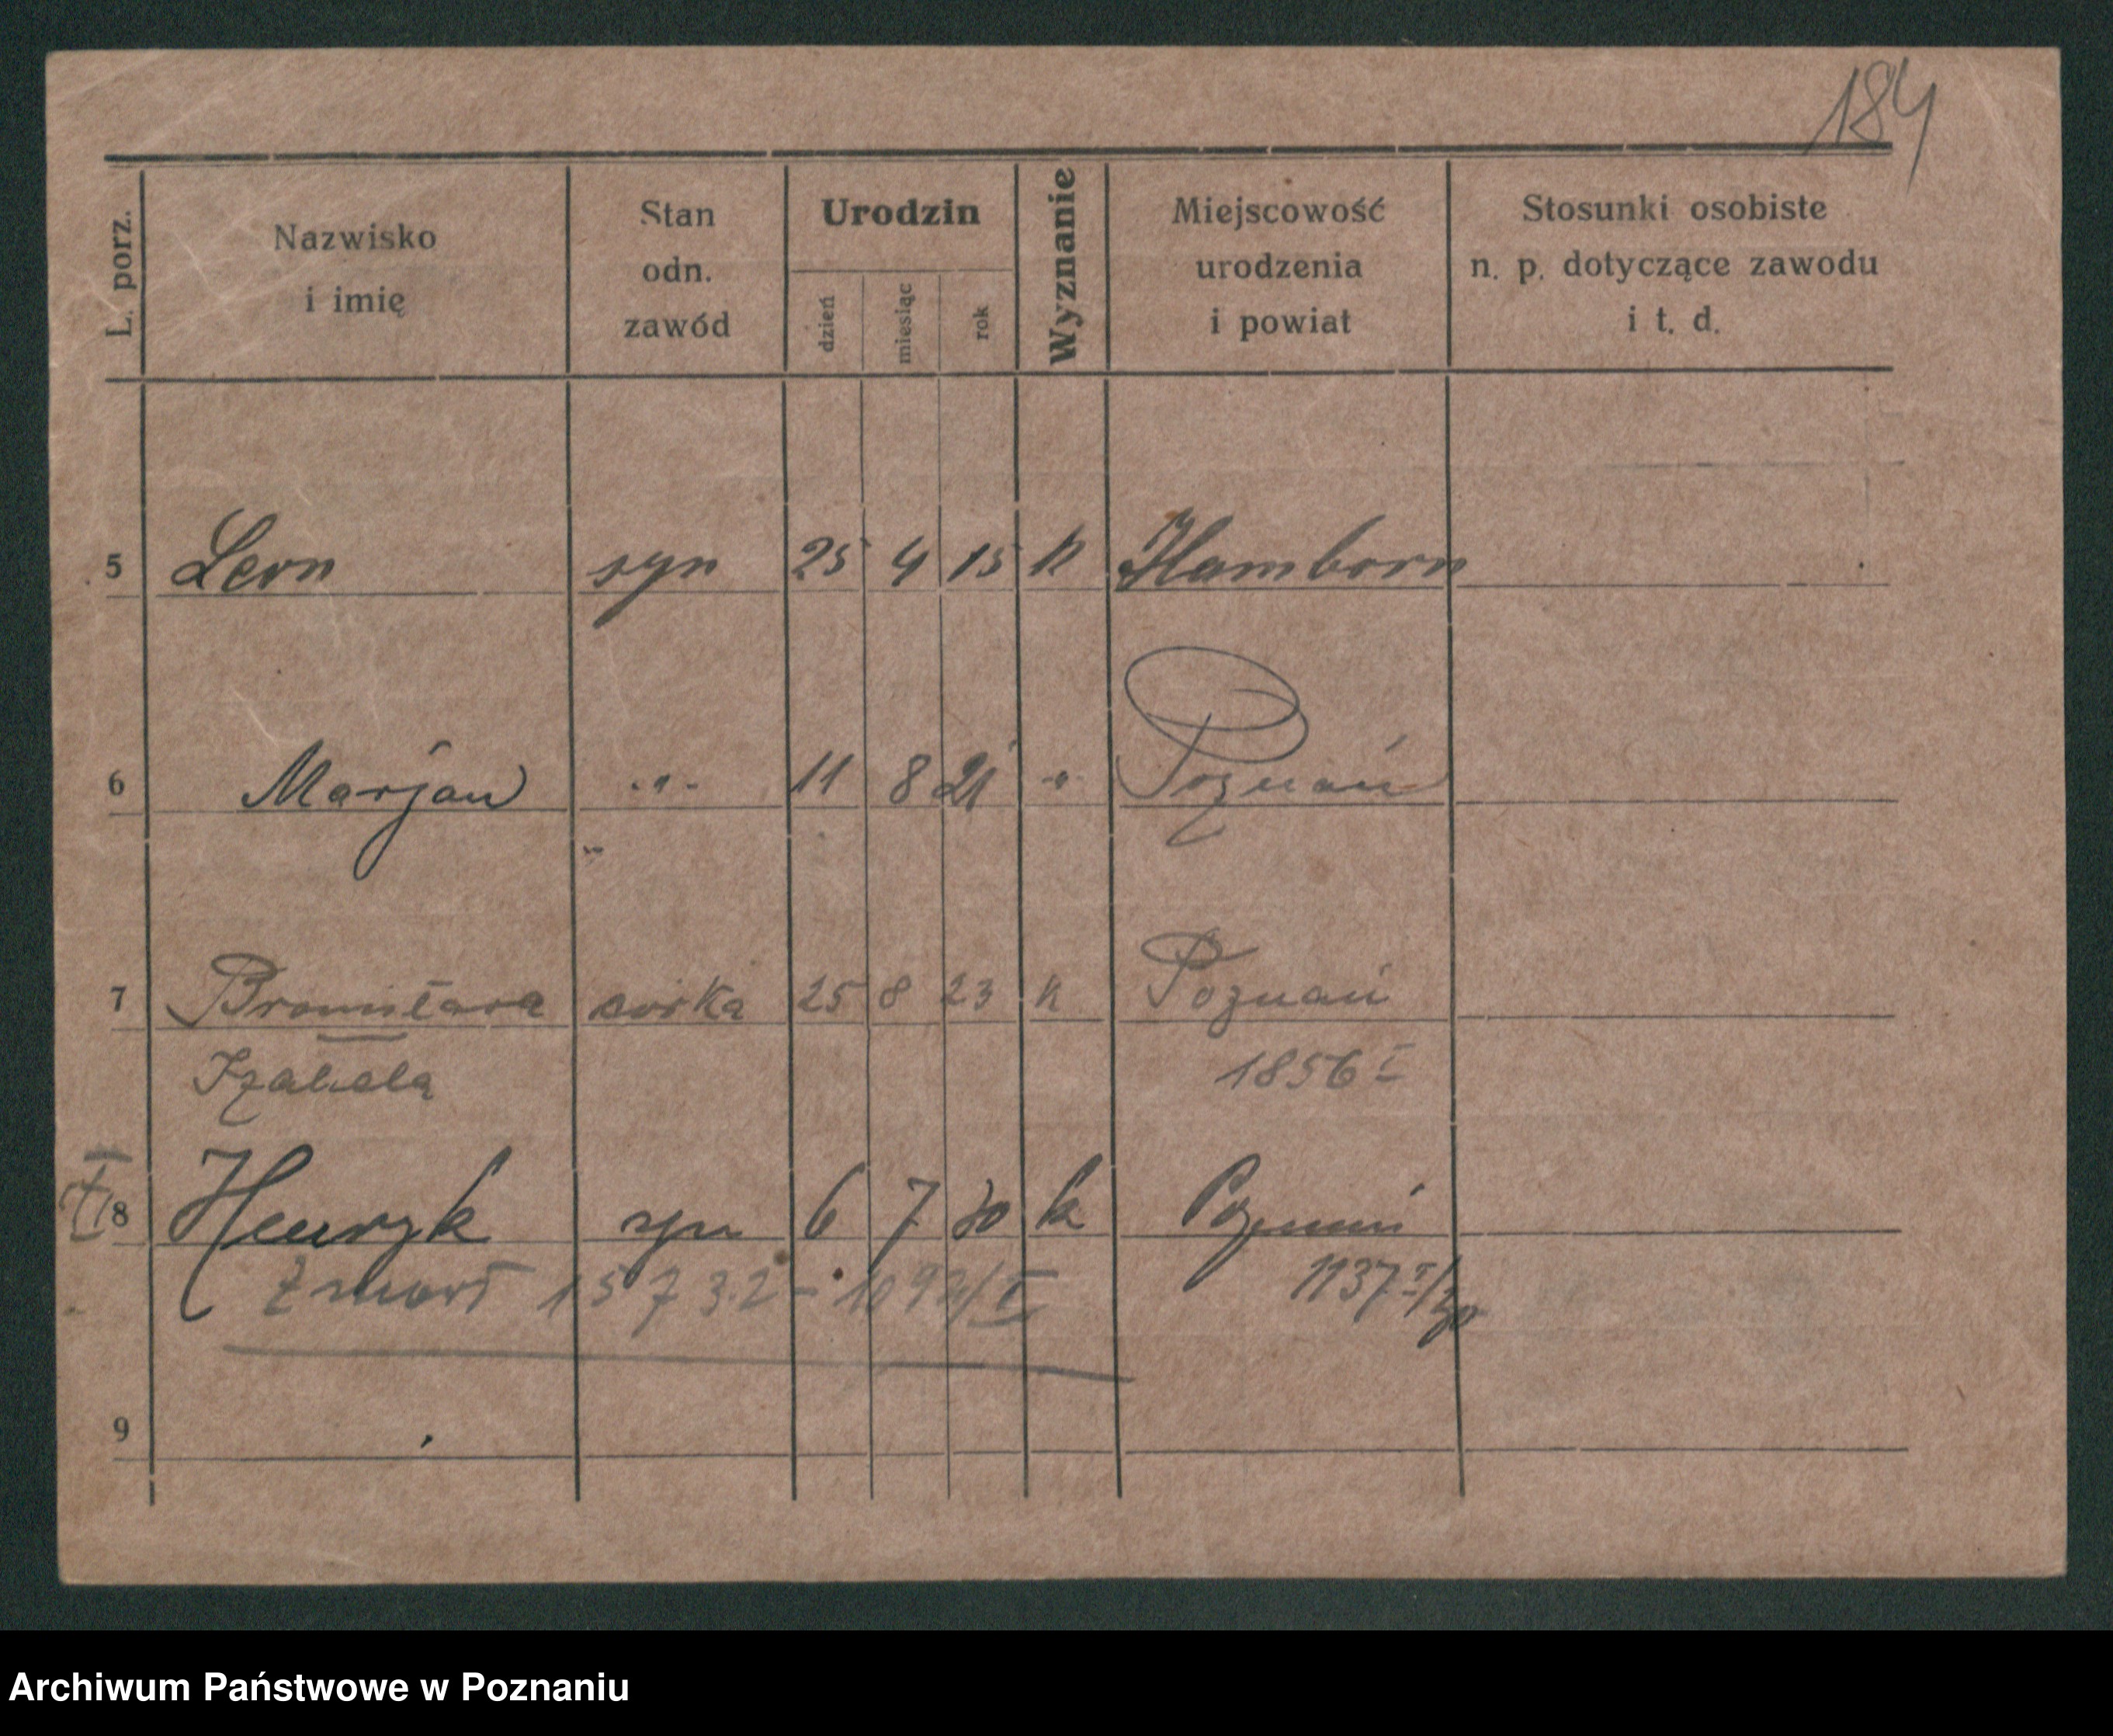 184
L. porz.
Nazwisko
i imię
Stan
odn.
zawód
Urodzin
dzień
miesiąc
rok
Wyznanie
Miejscowość
urodzenia
i powiat
Stosunki osobiste
n. p. dotyczące zawodu
i t. d.
5 Leon syn 25 4 15 k Hamborn
6 Marjan -"- 11 8 21 -"- Poznań
7 Bronisława córka 25 8 23 k Poznań
Izabela 1856 I
8 Henryk syn 6 7 30 k Poznań
1137 I/30
Zmarł 15 7 32 -
9
Archiwum Państwowe w Poznaniu